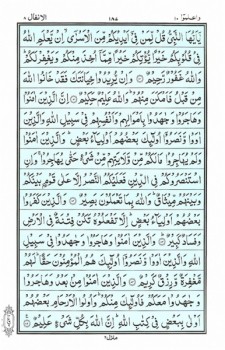 واعلموا ١٠ الانفال ٨
يٰٓاَيُّهَا النَّبِيُّ قُلْ لِّمَنْ فِيْٓ اَيْدِيْكُمْ مِّنَ الْاَسْرٰٓى ۙ اِنْ يَّعْلَمِ اللّٰهُ
فِيْ قُلُوْبِكُمْ خَيْرًا يُّؤْتِكُمْ خَيْرًا مِّمَّآ اُخِذَ مِنْكُمْ وَيَغْفِرْ لَكُمْ
وَاللّٰهُ غَفُوْرٌ رَّحِيْمٌ وَاِنْ يُّرِيْدُوْا خِيَانَتَكَ فَقَدْ خَانُوا اللّٰهَ
مِنْ قَبْلُ فَاَمْكَنَ مِنْهُمْ وَاللّٰهُ عَلِيْمٌ حَكِيْمٌ اِنَّ الَّذِيْنَ اٰمَنُوْا
وَهَاجَرُوْا وَجٰهَدُوْا بِاَمْوَالِهِمْ وَاَنْفُسِهِمْ فِيْ سَبِيْلِ اللّٰهِ وَالَّذِيْنَ
اٰوَوْا وَّنَصَرُوْٓا اُولٰٓئِكَ بَعْضُهُمْ اَوْلِيَآءُ بَعْضٍ وَالَّذِيْنَ اٰمَنُوْا
وَلَمْ يُهَاجِرُوْا مَا لَكُمْ مِّنْ وَّلَايَتِهِمْ مِّنْ شَيْءٍ حَتّٰى يُهَاجِرُوْا وَاِنِ
اسْتَنْصَرُوْكُمْ فِي الدِّيْنِ فَعَلَيْكُمُ النَّصْرُ اِلَّا عَلٰى قَوْمٍۭ بَيْنَكُمْ
وَبَيْنَهُمْ مِّيْثَاقٌ وَاللّٰهُ بِمَا تَعْمَلُوْنَ بَصِيْرٌ وَالَّذِيْنَ كَفَرُوْا
بَعْضُهُمْ اَوْلِيَآءُ بَعْضٍ اِلَّا تَفْعَلُوْهُ تَكُنْ فِتْنَةٌ فِي الْاَرْضِ
وَفَسَادٌ كَبِيْرٌ وَالَّذِيْنَ اٰمَنُوْا وَهَاجَرُوْا وَجٰهَدُوْا فِيْ سَبِيْلِ
اللّٰهِ وَالَّذِيْنَ اٰوَوْا وَّنَصَرُوْٓا اُولٰٓئِكَ هُمُ الْمُؤْمِنُوْنَ حَقًّا لَهُمْ
مَّغْفِرَةٌ وَّرِزْقٌ كَرِيْمٌ وَالَّذِيْنَ اٰمَنُوْا مِنْۢ بَعْدُ وَهَاجَرُوْا
وَجٰهَدُوْا مَعَكُمْ فَاُولٰٓئِكَ مِنْكُمْ وَاُولُوا الْاَرْحَامِ بَعْضُهُمْ
اَوْلٰى بِبَعْضٍ فِيْ كِتٰبِ اللّٰهِ اِنَّ اللّٰهَ بِكُلِّ شَيْءٍ عَلِيْمٌ
منزل ٢